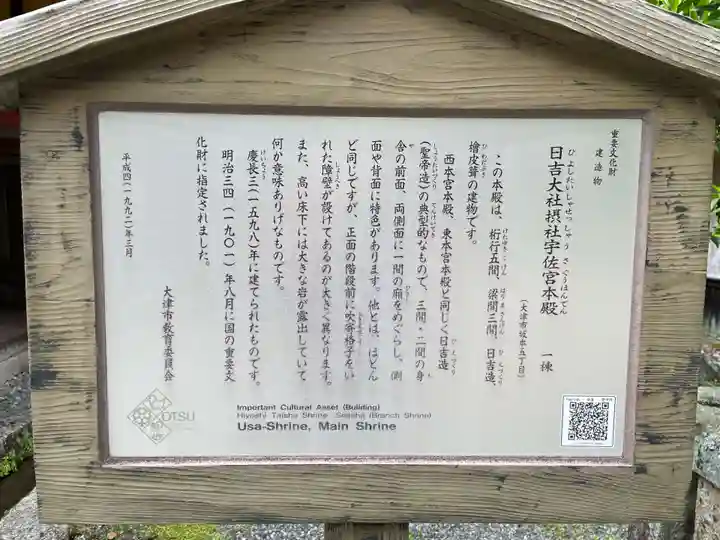 重要文化財
建造物
日吉大社摂社宇佐宮本殿 一棟
(大津市坂本五丁目)
この本殿は、桁行五間、梁間三間、日吉造、
檜皮葺の建物です。
西本宮本殿、東本宮本殿と同じく日吉造
(聖帝造)の典型的なもので、三間・二間の身
舎の前面、両側面に一間の廂をめぐらし、側
面や背面に特色があります。他とは、ほとん
ど同じですが、正面の階段前に吹寄格子をい
れた障壁が設けてあるのが大きく異なります。
また、高い床下には大きな岩が露出していて
何か意味ありげなものです。
慶長三(一五九八)年に建てられたものです。
明治三四(一九〇一)年八月に国の重要文
化財に指定されました。
平成四(一九九二)年三月
大津市教育委員会
OTSU
Important Cultural Asset (Building)
Hiyoshi Taisha Shrine Sessha (Branch Shrine)
Usa-Shrine, Main Shrine